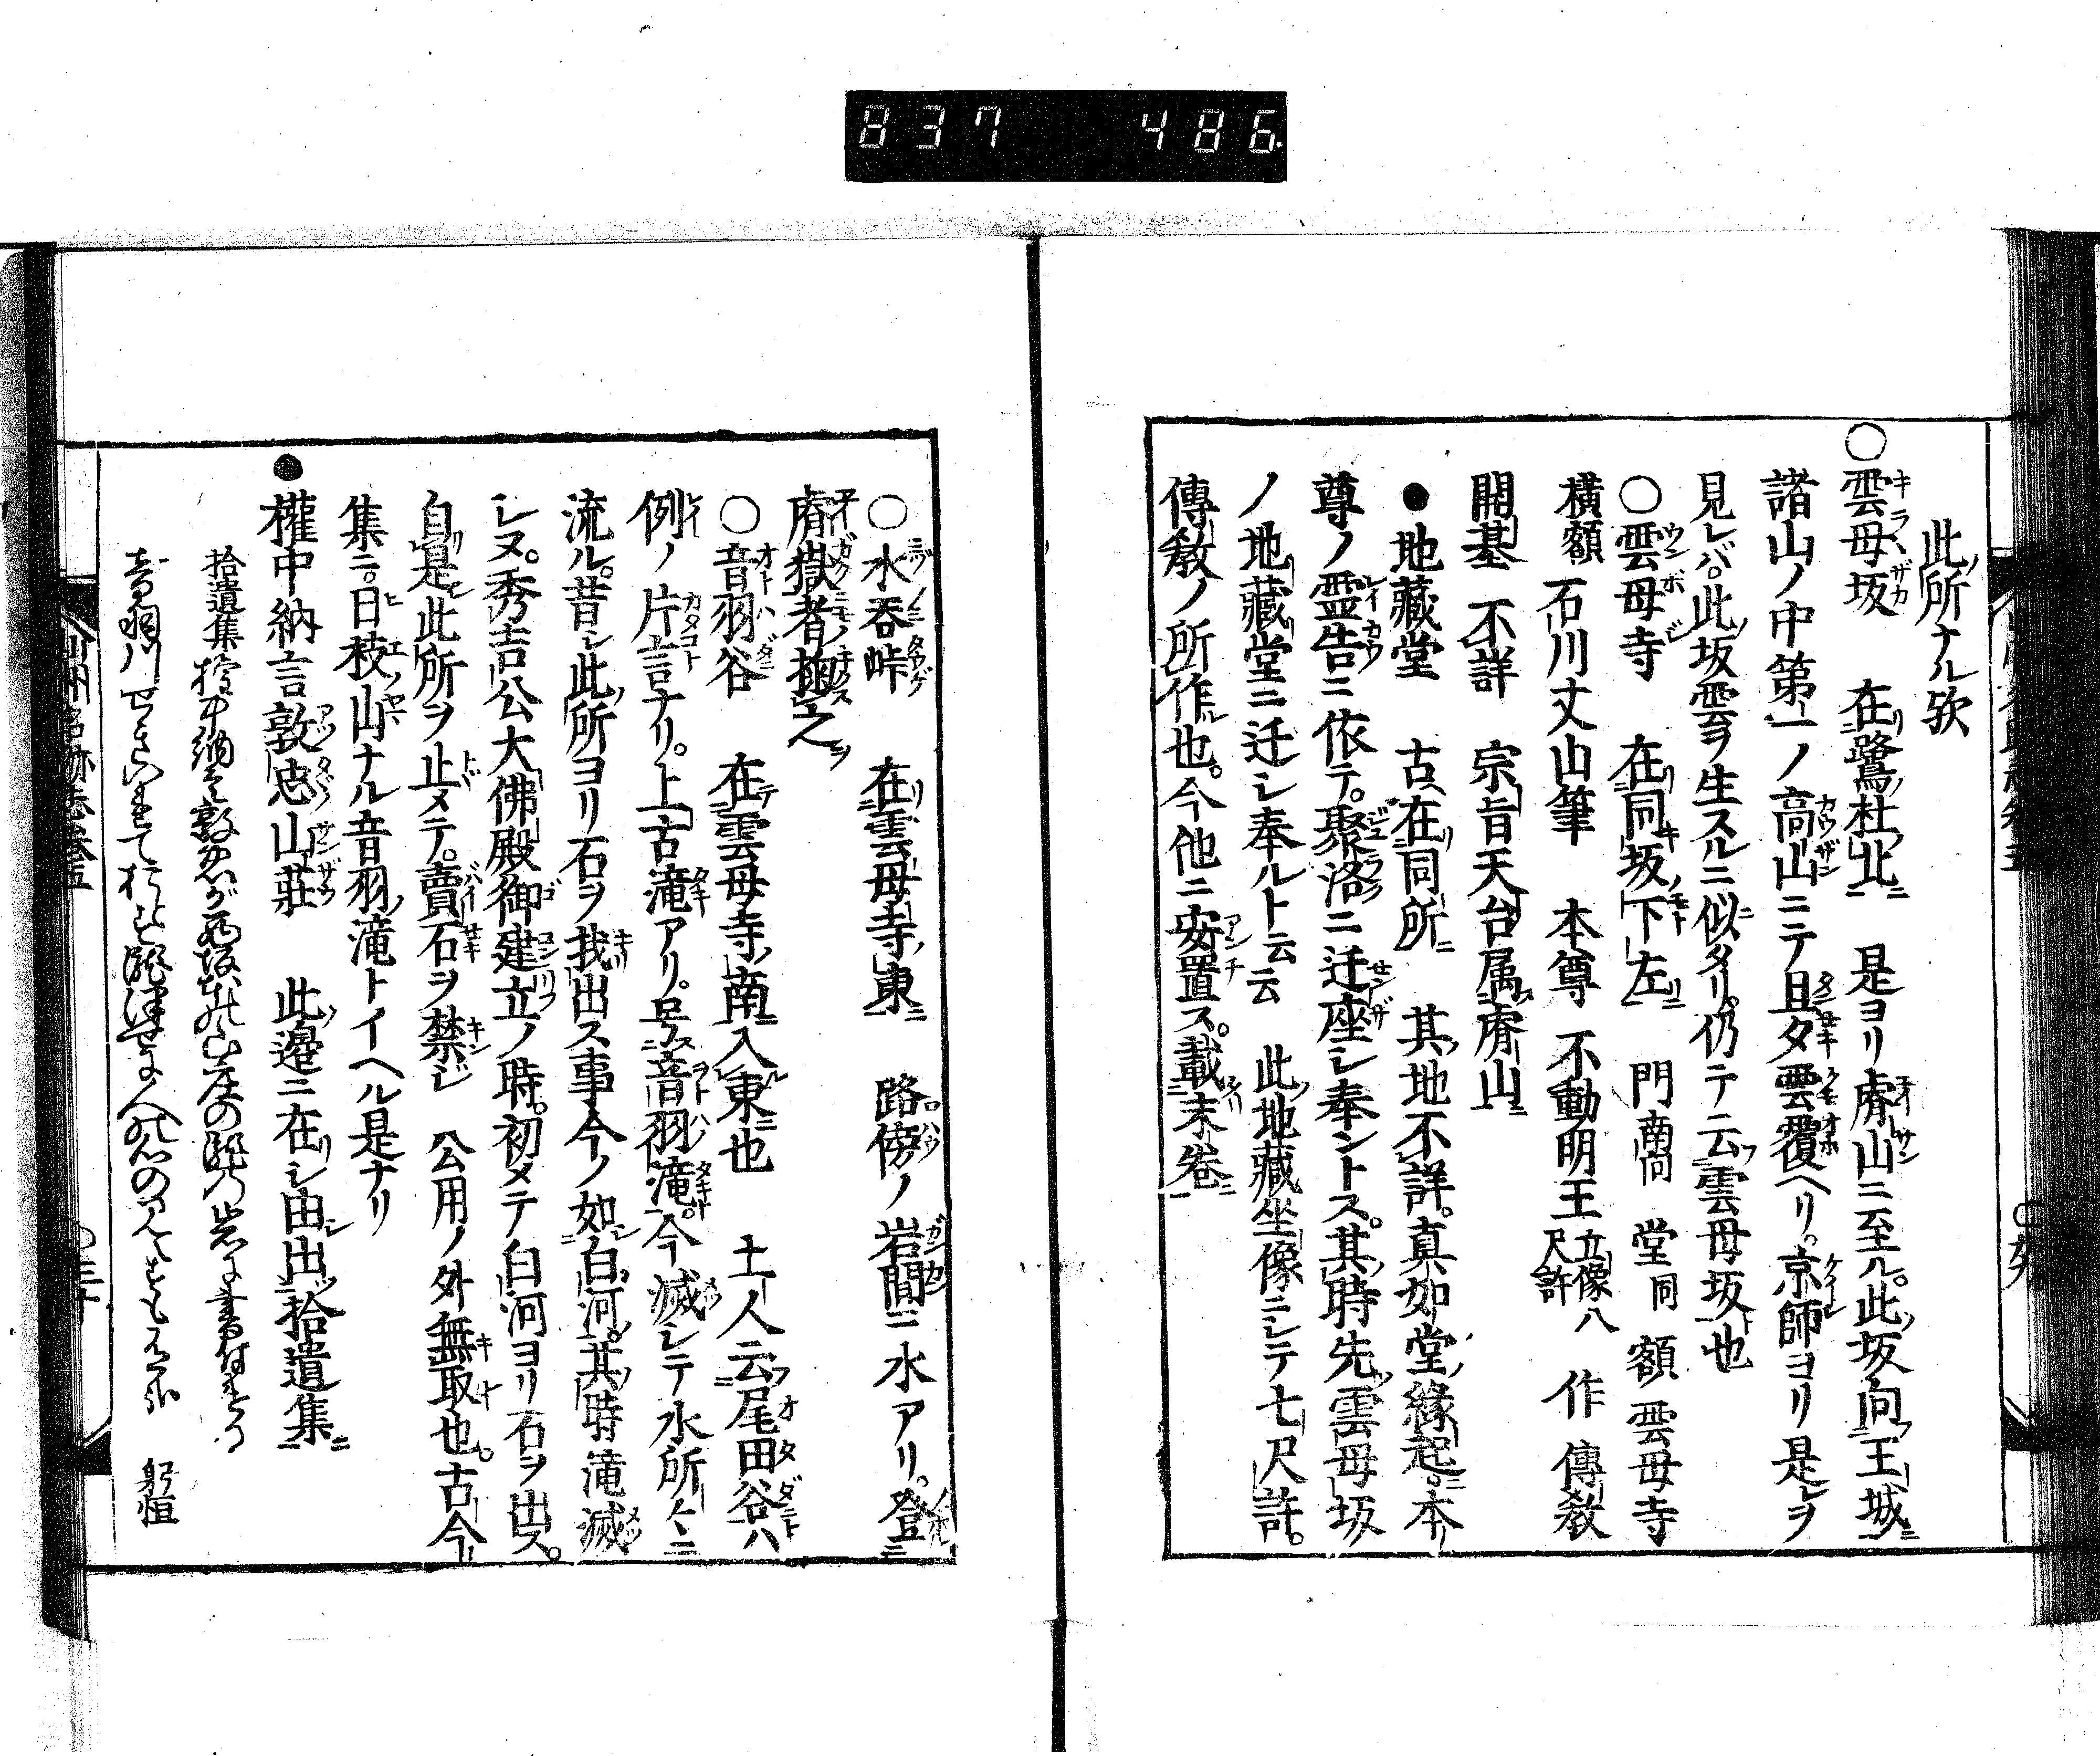 837 486
此所ナル欤
○雲母坂 在鷺杜北 是ヨリ㟴山ニ至ル。此坂向王城
諸山ノ中第一ノ高山ニテ旦夕雲覆ヘリ。京師ヨリ是レヲ
見レバ。此坂雲ヲ生スルニ似タリ。仍テ云雲母坂也
○雲母寺 在同坂下左 門南向 堂同 額雲母寺
横額 石川丈山筆 本尊 不動明王立像八尺許 作 傳教
開基 不詳 宗旨天台属㟴山
●地藏堂 古在同所 其地不詳。真如堂縁起。本
尊ノ霊告ニ依テ。聚洛ニ迁座シ奉ントス。其時先雲母坂
ノ地藏堂ニ迁シ奉ルト云云 此地藏坐像ニシテ七尺許。
傳教ノ所作也。今他ニ安置ス。載末巻
○水呑峠 在雲母寺東 路傍ノ岩間ニ水アリ。登
㟴嶽者掬之
○音羽谷 在雲母寺南入東也 土人云尾田谷ハ
例ノ片言ナリ。上古滝アリ。号音羽滝。今滅シテ水所々ニ
流ル。昔シ此所ヨリ石ヲ我出ス事今ノ如白河。其時滝滅
レヌ。秀吉公大佛殿御建立ノ時。初メテ白河ヨリ石ヲ出ス。
自是此所ヲ止メテ。賣石ヲ禁ジ 公用ノ外無取也。古今
集ニ。日枝山ナル音羽滝トイヘル是ナリ
●權中納言敦忠山荘 此邉ニ在シ由出拾遺集
拾遺集 権中納言敦忠が西坂本の山庄の瀧の岩に書付ける
音羽川せき入て おとす瀧津せに人の心の見えもするかな 躬恒
山州名跡志巻五